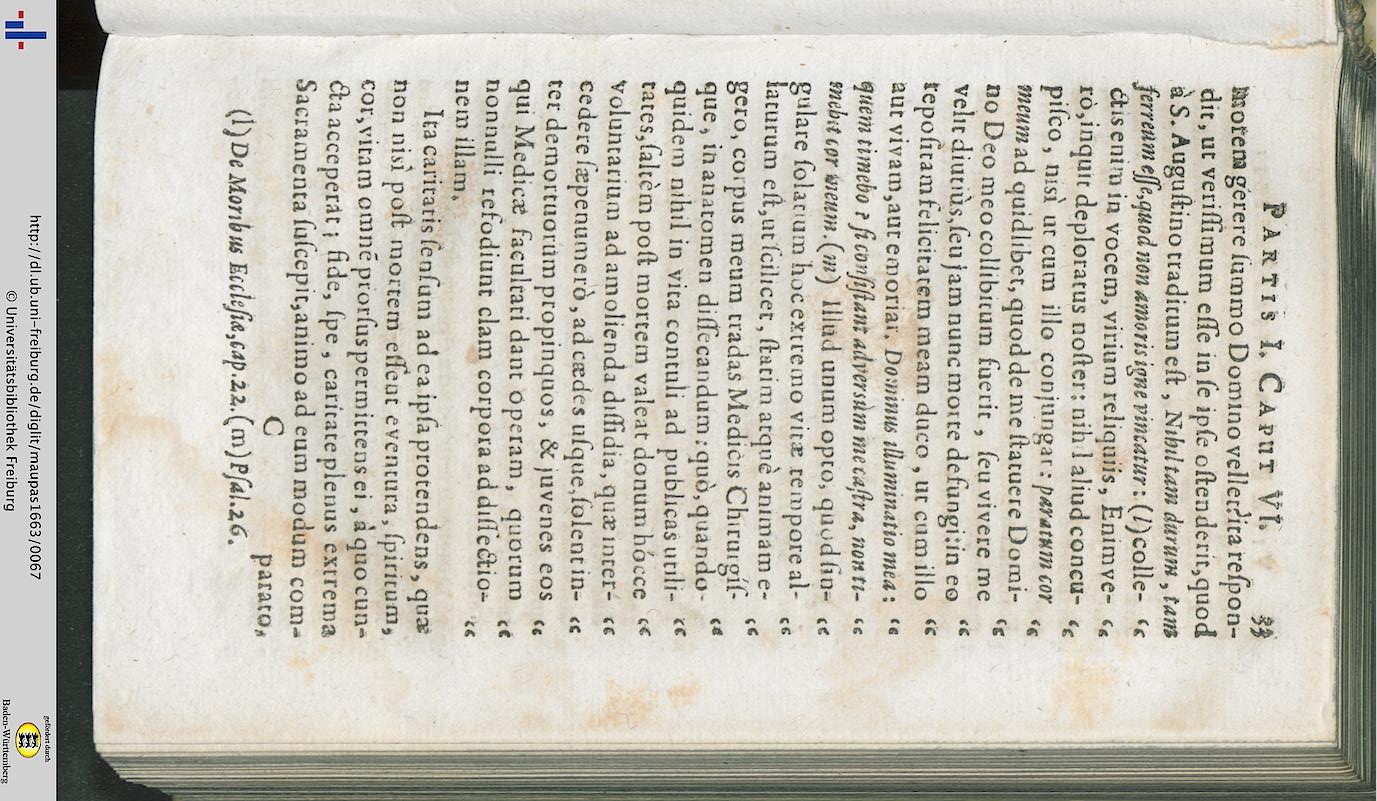 PARTIS I. CAPUT VI. 33
morem gerere summo Domino velle: dita respon-
dit, ut verissimum esse in se ipse ostenderit, quod
à S. Augustino traditum est, Nihil tam durum, tam
ferreum esse, quod non amoris igne vincatur: (l) colle-
ctis enim in vocem, virium reliquiis, Enimve- “
rò, inquit deploratus noster: nihil aliud concu- “
pisco, nisì ut cum illo conjungar: paratum cor “
meum ad quidlibet, quod de me statuere Domi- “
no Deo meo collibitum fuerit, seu vivere me “
velit diutiùs, seu jam nunc morte defungi: in eo “
repositam felicitatem meam duco, ut cum illo “
aut vivam, aut emoriar. Dominus illuminatio mea: “
quem timebo? si consistant adversùm me castra, non ti- “
mebit cor meum. (m) Illud unum opto, quod sin- “
gulare solatium hoc extremo vitæ tempore al- “
laturum est, ut scilicet, statim atquè animam e- “
gero, corpus meum tradas Medicis Chirurgis- “
que, in anatomen dissecandum: quò, quando- “
quidem nihil in vita contuli ad publicas utili- “
tates, saltèm post mortem valeat donum hócce “
voluntarium ad amolienda dissidia, quæ inter- “
cedere sæpenumerò, ad cædes usque, solent in- “
ter demortuorum propinquos, & juvenes eos “
qui Medicæ facultati dant operam, quorum “
nonnulli refodiunt clam corpora ad dissectio- “
nem illam.
Ita caritatis sensum ad ea ipsa protendens, quæ
non nisì post mortem essent eventura, spiritum,
cor, vitam omnē prorsus permittens ei, à quo cun-
cta acceperat; fide, spe, caritate plenus extrema
Sacramenta suscepit, animo ad eum modum com-
C parato,
(l) De Moribus Ecclesiæ, cap. 22. (m) Psal. 26.
http://dl.ub.uni-freiburg.de/diglit/maupas1663/0067
© Universitätsbibliothek Freiburg
gefördert durch
Baden-Württemberg